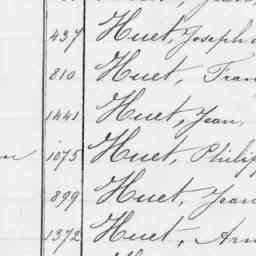 437 Huet, Joseph
810 Huet, Fran
1441 Huet, Jean,
1075 Huet, Philip
899 Huet, Jean
1372 Huet,